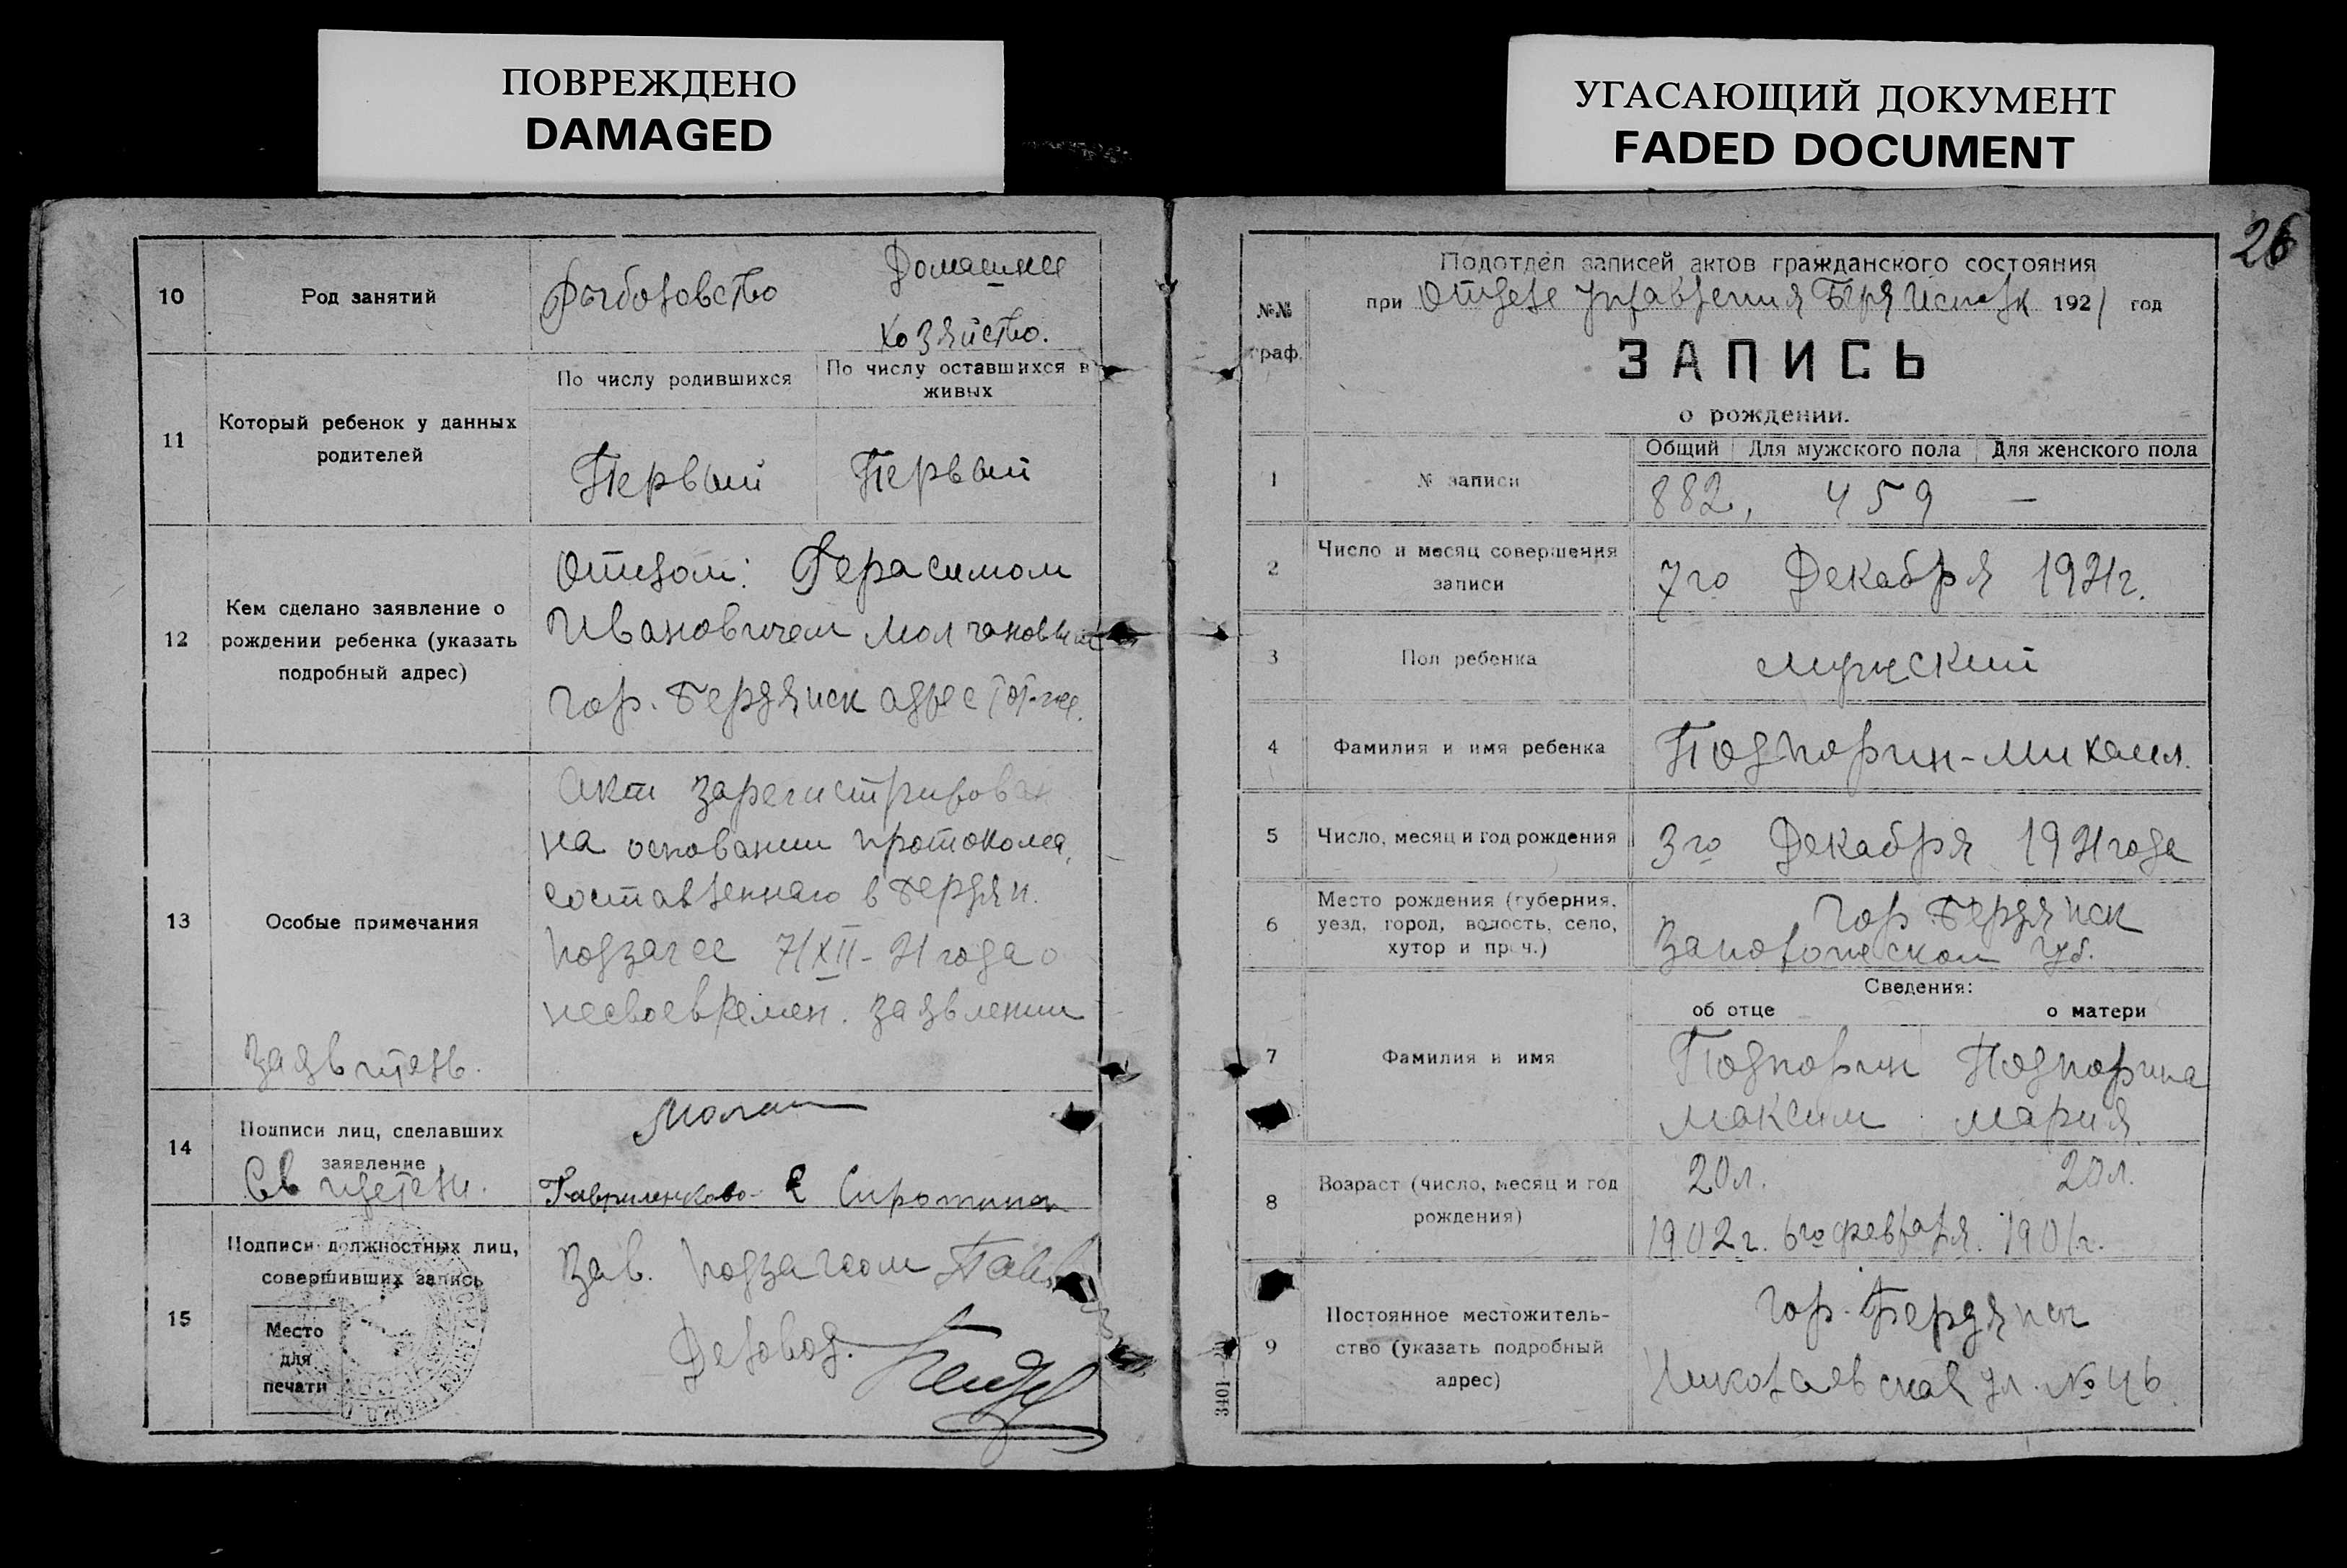 ПОВРЕЖДЕНО
DAMAGED
УГАСАЮЩИЙ ДОКУМЕНТ
FADED DOCUMENT
10
Род занятий
Рыболовство
Домашнее
хозяйство.
11
Который ребенок у данных
родителей
По числу родившихся
По числу оставшихся в
живых
Первый
Первый
12
Кем сделано заявление о
рождении ребенка (указать
подробный адрес)
Отцом: Герасимом
Ивановичем Молчановым
гор. Бердянск адрес тот-же.
13
Особые примечания
Акт зарегистрирован
на основании протокола,
составленнаго в Бердян.
подзагсе 7/XII-21 года о
несвоевремен. заявлении
Заявитель.
14
Подписи лиц, сделавших
заявление
Свидетели.
Гавриленково-
15
Подписи должностных лиц,
совершивших запись
Место
для
печати
Зав. подзагсом
Деловод.
26
№№
граф.
Подотдел записей актов гражданского состояния
при Отделе Управления 1921 год
ЗАПИСЬ
о рождении.
1
№ записи
Общий
Для мужского пола
Для женского пола
882, 459 —
2
Число и месяц совершения
записи
7го Декабря 1921г.
3
Пол ребенка
мужский
4
Фамилия и имя ребенка
Подпорин-Михаил.
5
Число, месяц и год рождения
3го Декабря 1921 года
6
Место рождения (губерния,
уезд, город, волость, село,
хутор и проч.)
Гор. Бердянск
Запорожской губ.
7
Фамилия и имя
Сведения:
об отце
о матери
Подпорин Подпорина
Максим Мария
8
Возраст (число, месяц и год
рождения)
20л. 20л.
1902г. 6го февраля. 1901г.
9
Постоянное местожитель-
ство (указать подробный
адрес)
гор. Бердянск
Николаевская ул. № 46.
3401—20